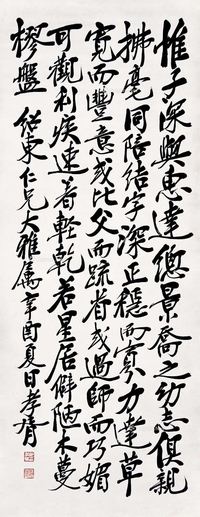 惟子深與惠達總景喬之幼志俱親
拂毫同陪結字深正穩而實力達草
寬而豐意或比父而疏省或過師而巧媚
可觀利疾速者輕乾若星居僻陋木蔓
樛盤 紹東仁兄大雅屬 辛酉夏日孝胥